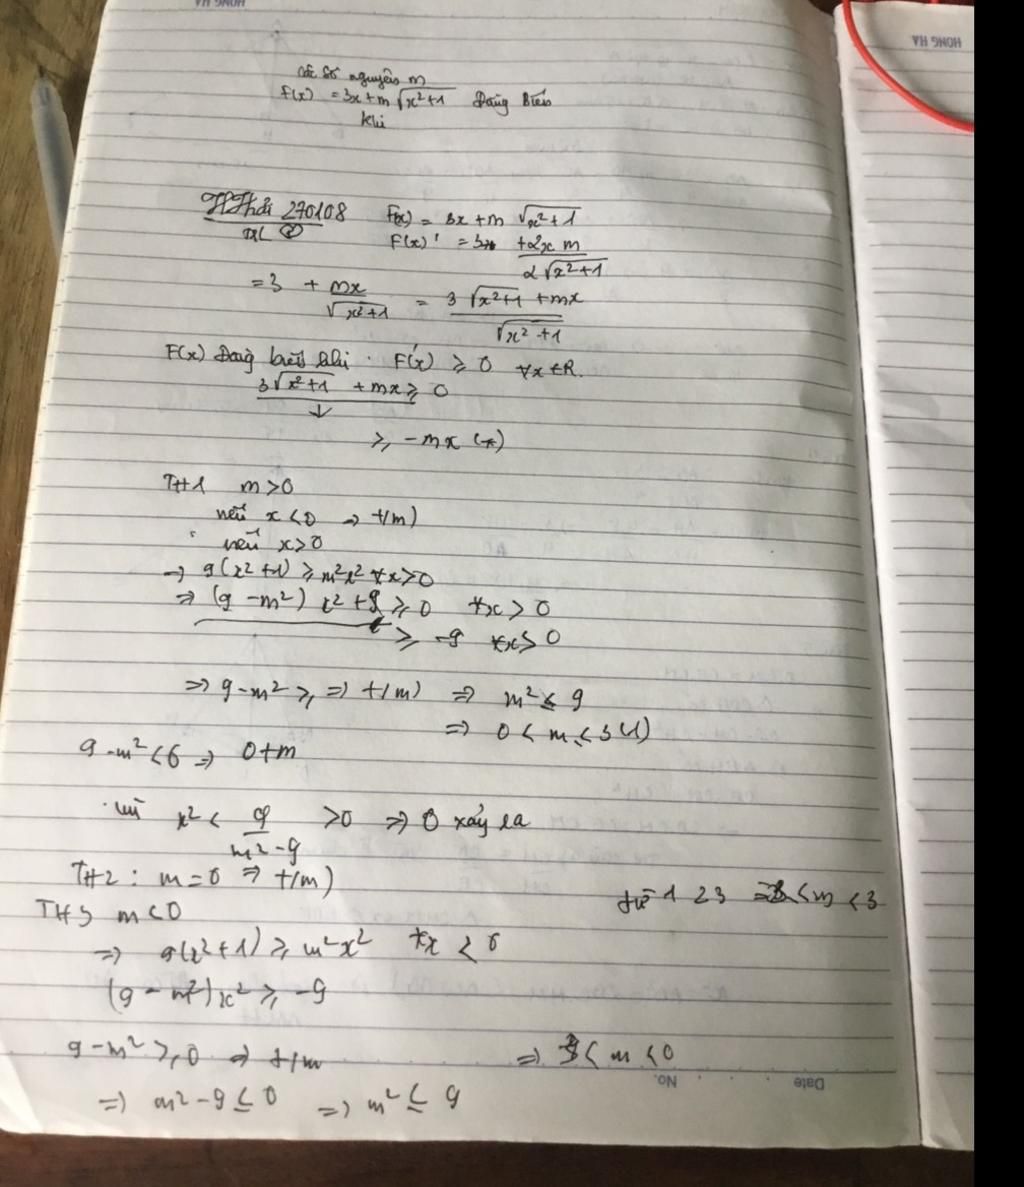 HONG HA
HONG HA
các số nguyên m
f(x) = 3x + m √(x²+1) Đồng Biến
khi
270108
F(x) = 3x + m √(x²+1)
F(x)' = 3 + 2x m / 2√(x²+1)
= 3 + mx / √(x²+1) = 3√(x²+1) + mx / √(x²+1)
F(x) Đồng biến khi F'(x) ≥ 0 ∀x ∈ R.
3√(x²+1) + mx ≥ 0
↓
≥ -mx (*)
TH1 m > 0
nếu x < 0 → t/m)
nếu x > 0
→ 9(x²+1) ≥ m²x² ∀x > 0
⇒ (9 - m²) x² + 9 ≥ 0 ∀x > 0
≥ -9 ∀x > 0
⇒ 9 - m² ≥ ⇒ t/m) ⇒ m² ≤ 9
⇒ 0 < m ≤ 3 (1)
9 - m² < 0 ⇒ 0 t m
vì x² < 9 / m² - 9 > 0 ⇒ 0 xảy ra
TH2 : m = 0 ⇒ t/m)
từ 1 2 3 < m < 3
TH3 m < 0
⇒ 9(x²+1) ≥ m²x² ∀x < 0
(9 - m²)x² ≥ -9
9 - m² ≥ 0 ⇒ t/m ⇒ 3 < m < 0
Date . . . . No.
⇒ m² - 9 ≤ 0 ⇒ m² ≤ 9